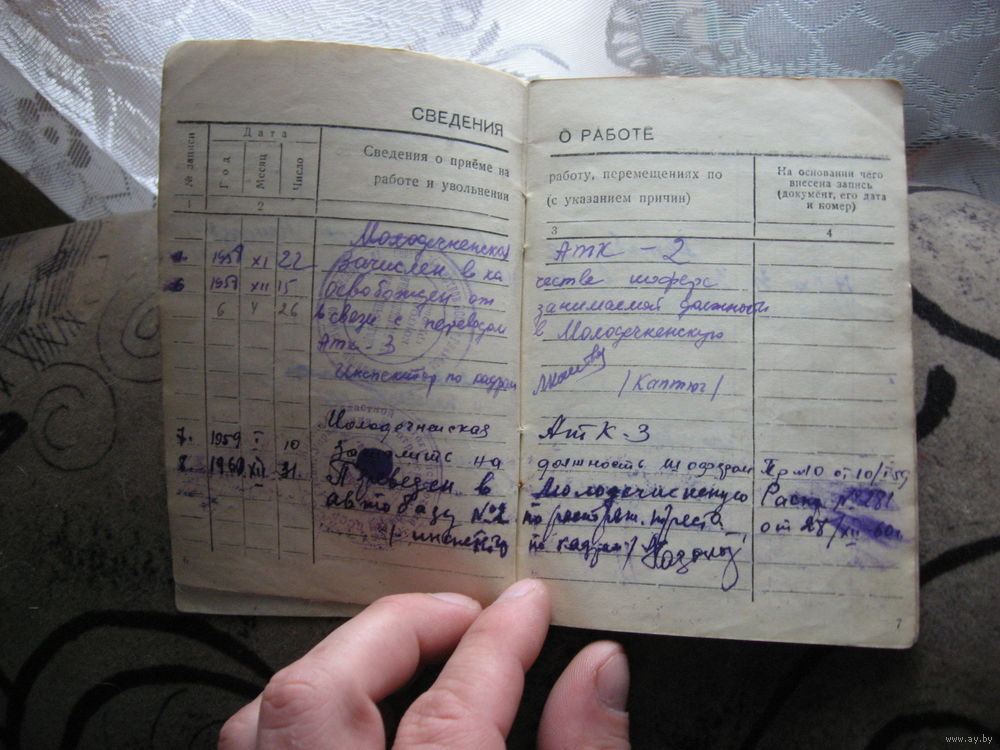 СВЕДЕНИЯ О РАБОТЕ
№ записи
Дата
Год
Месяц
Число
Сведения о приёме на работу, перемещениях по
работе и увольнении (с указанием причин)
На основании чего
внесена запись
(документ, его дата
и номер)
1 2 3 4
Молодечненская АТК - 2
XI 22 Зачислен в ка
честве шофера
XII 15 освобожден от занимаемой должности
в связи с переводом в Молодечненскую
АТК-3
Инспектор по кадрам /Каптюг/
Молодечненская АТК-3
7. 1959 I 10 на должность шофером Пр №10 от 10/I 59
8. 1960 XII 31. Переведен в Молодечненскую Расп. №281
автобазу №2 по треста от XII 60г.
по кадрам/
6
7
www.ay.by